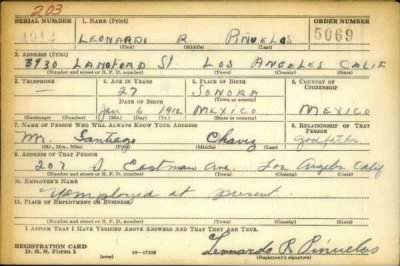 203
SERIAL NUMBER 1. NAME (Print) ORDER NUMBER
1912 LEONARDI R PIÑUELOS 5069
(First) (Middle) (Last)
2. ADDRESS (Print)
LANGFORD St. LOS ANGELES CALIF
(Number and street or R. F. D. number) (Town) (County) (State)
3. TELEPHONE 4. AGE IN YEARS 5. PLACE OF BIRTH 6. COUNTRY OF CITIZENSHIP
— 27 SONORA
DATE OF BIRTH (Town or county)
Jan 6 1912 MEXICO MEXICO
(Exchange) (Number) (Mo.) (Day) (Yr.) (State or country)
7. NAME OF PERSON WHO WILL ALWAYS KNOW YOUR ADDRESS 8. RELATIONSHIP OF THAT PERSON
Mr. Santiago Chavez Godfather
(Mr., Mrs., Miss) (First) (Middle) (Last)
9. ADDRESS OF THAT PERSON
207 S Eastman Ave. Los Angeles Calif
(Number and street or R. F. D. number) (Town) (County) (State)
10. EMPLOYER'S NAME
Unemployed at present.
11. PLACE OF EMPLOYMENT OR BUSINESS
(Number and street or R. F. D. number) (Town) (County) (State)
I AFFIRM THAT I HAVE VERIFIED ABOVE ANSWERS AND THAT THEY ARE TRUE.
REGISTRATION CARD
D. S. S. Form 1 (over) Leonardo R Piñuelos
(Registrant's signature)